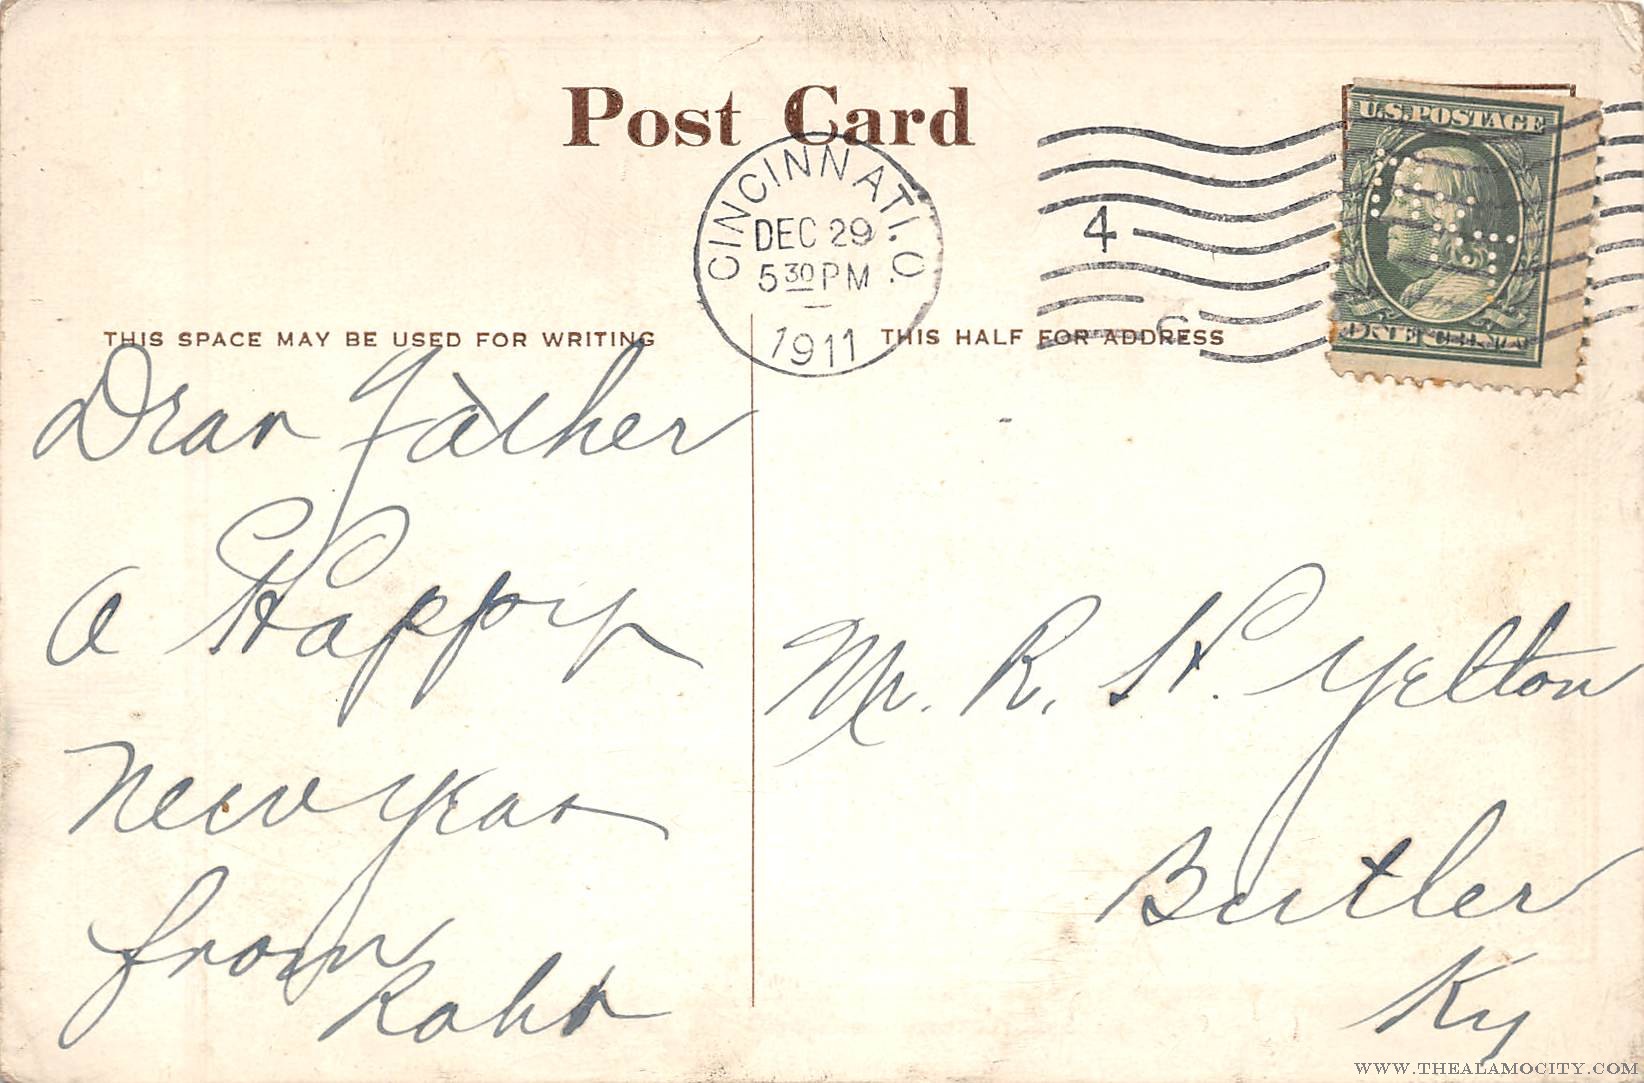 Post Card
CINCINNATI. O.
DEC 29
5 30 PM
1911
4
U.S. POSTAGE
ONE CENT
THIS SPACE MAY BE USED FOR WRITING
THIS HALF FOR ADDRESS
Dear Father
A Happy
New Year
from
Robt
Mr. R. H. Yelton
Butler
Ky
WWW.THEALAMOCITY.COM